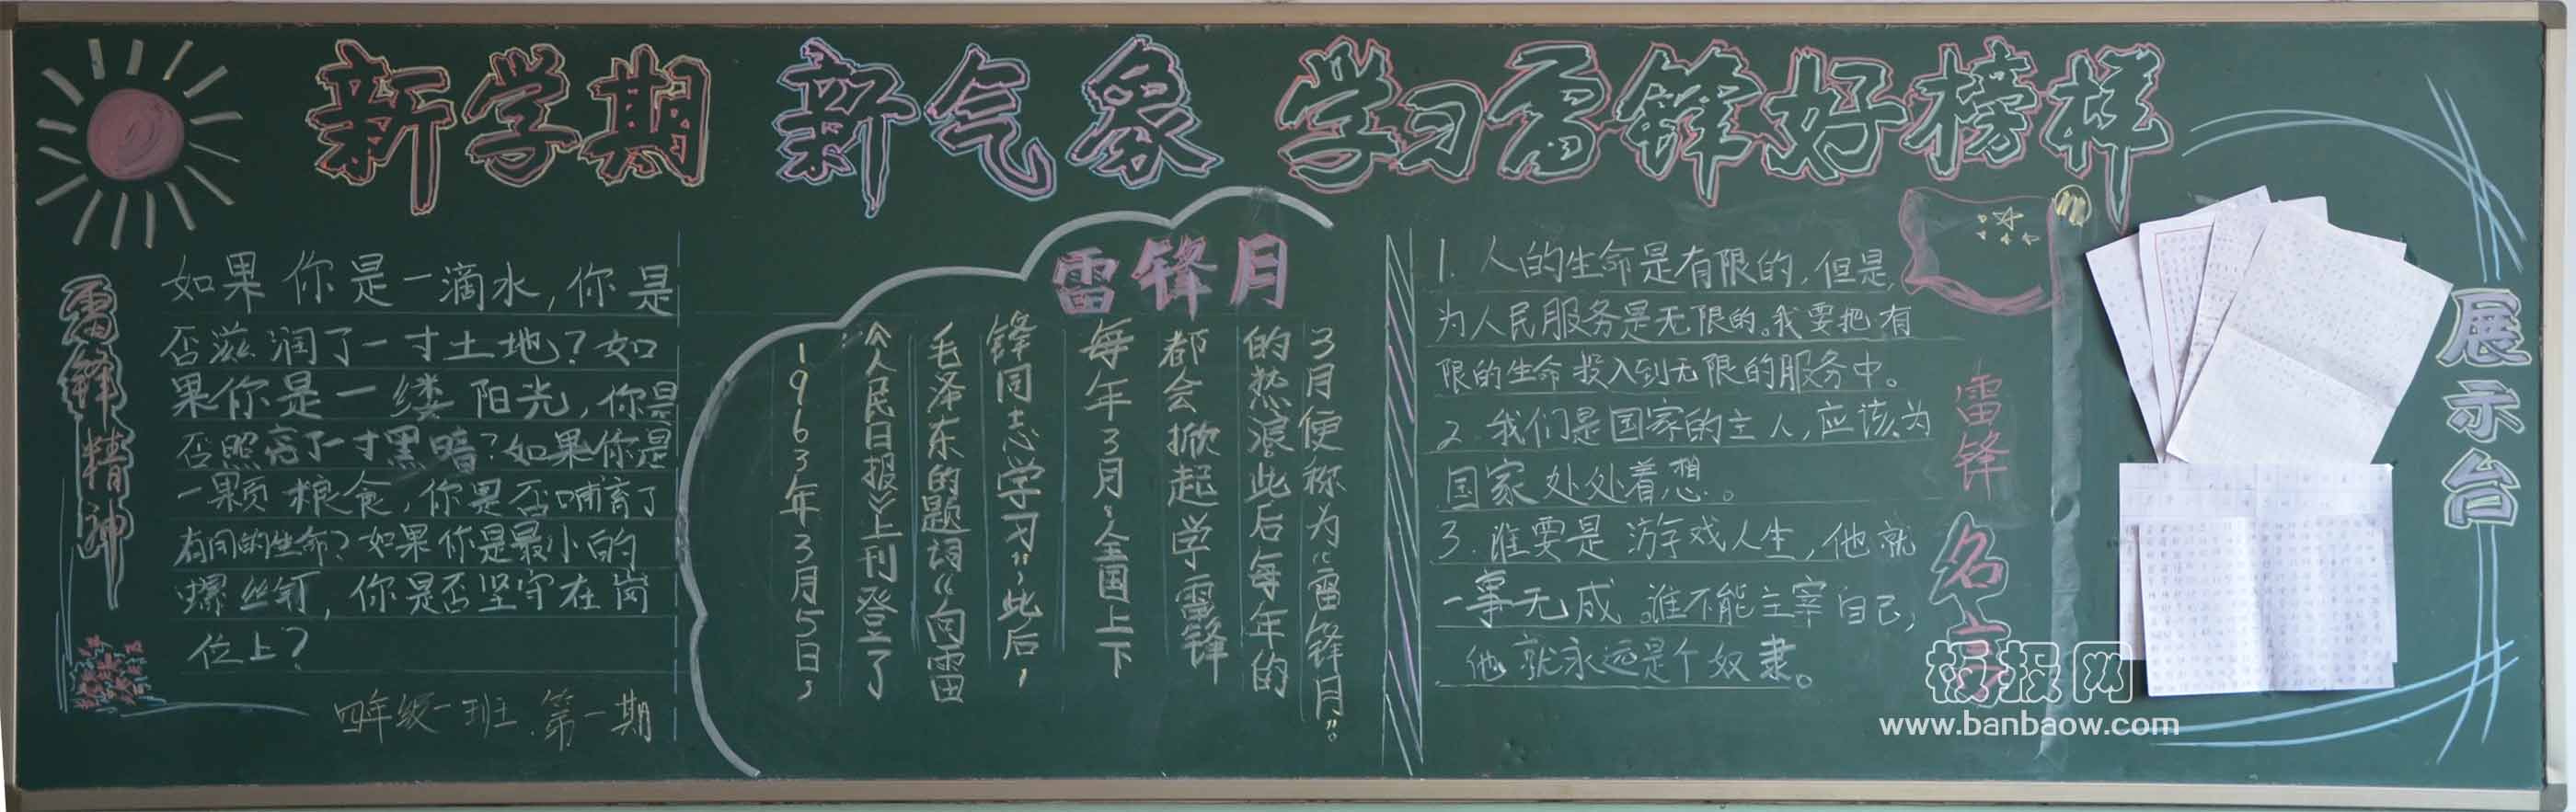 新学期 新气象 学习雷锋好榜样
雷锋精神
如果你是一滴水,你是
否滋润了一寸土地?如
果你是一缕阳光,你是
否照亮了一寸黑暗?如果你是
一颗粮食,你是否哺育了
有用的生命?如果你是最小的
螺丝钉,你是否坚守在岗
位上?
四年级一班 第一期
雷锋月
1963年3月5日,
《人民日报》上刊登了
毛泽东的题词“向雷
锋同志学习”,此后,
每年3月,全国上下
都会掀起学雷锋
的热浪此后每年的
3月便称为“雷锋月”。
1. 人的生命是有限的,但是,
为人民服务是无限的。我要把有
限的生命投入到无限的服务中。
2. 我们是国家的主人,应该为
国家处处着想。
3. 谁要是游戏人生,他就
一事无成。谁不能主宰自己,
他就永远是个奴隶。
雷锋名言
展示台
板报网
www.banbaow.com